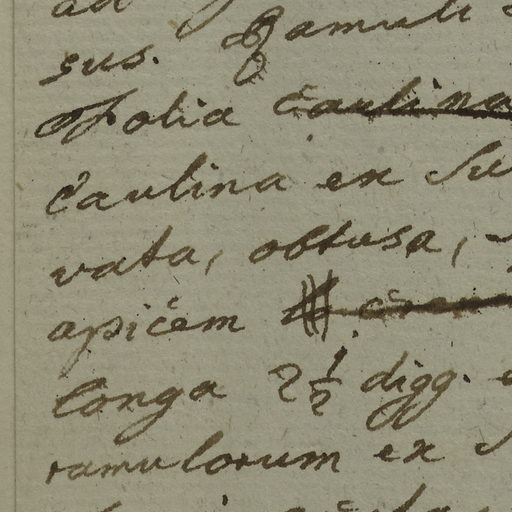 sus. Ramuli
Folia caulina
caulina ex
vata, obtusa,
apicem
longa 2 1/2 digg.
ramulorum ex